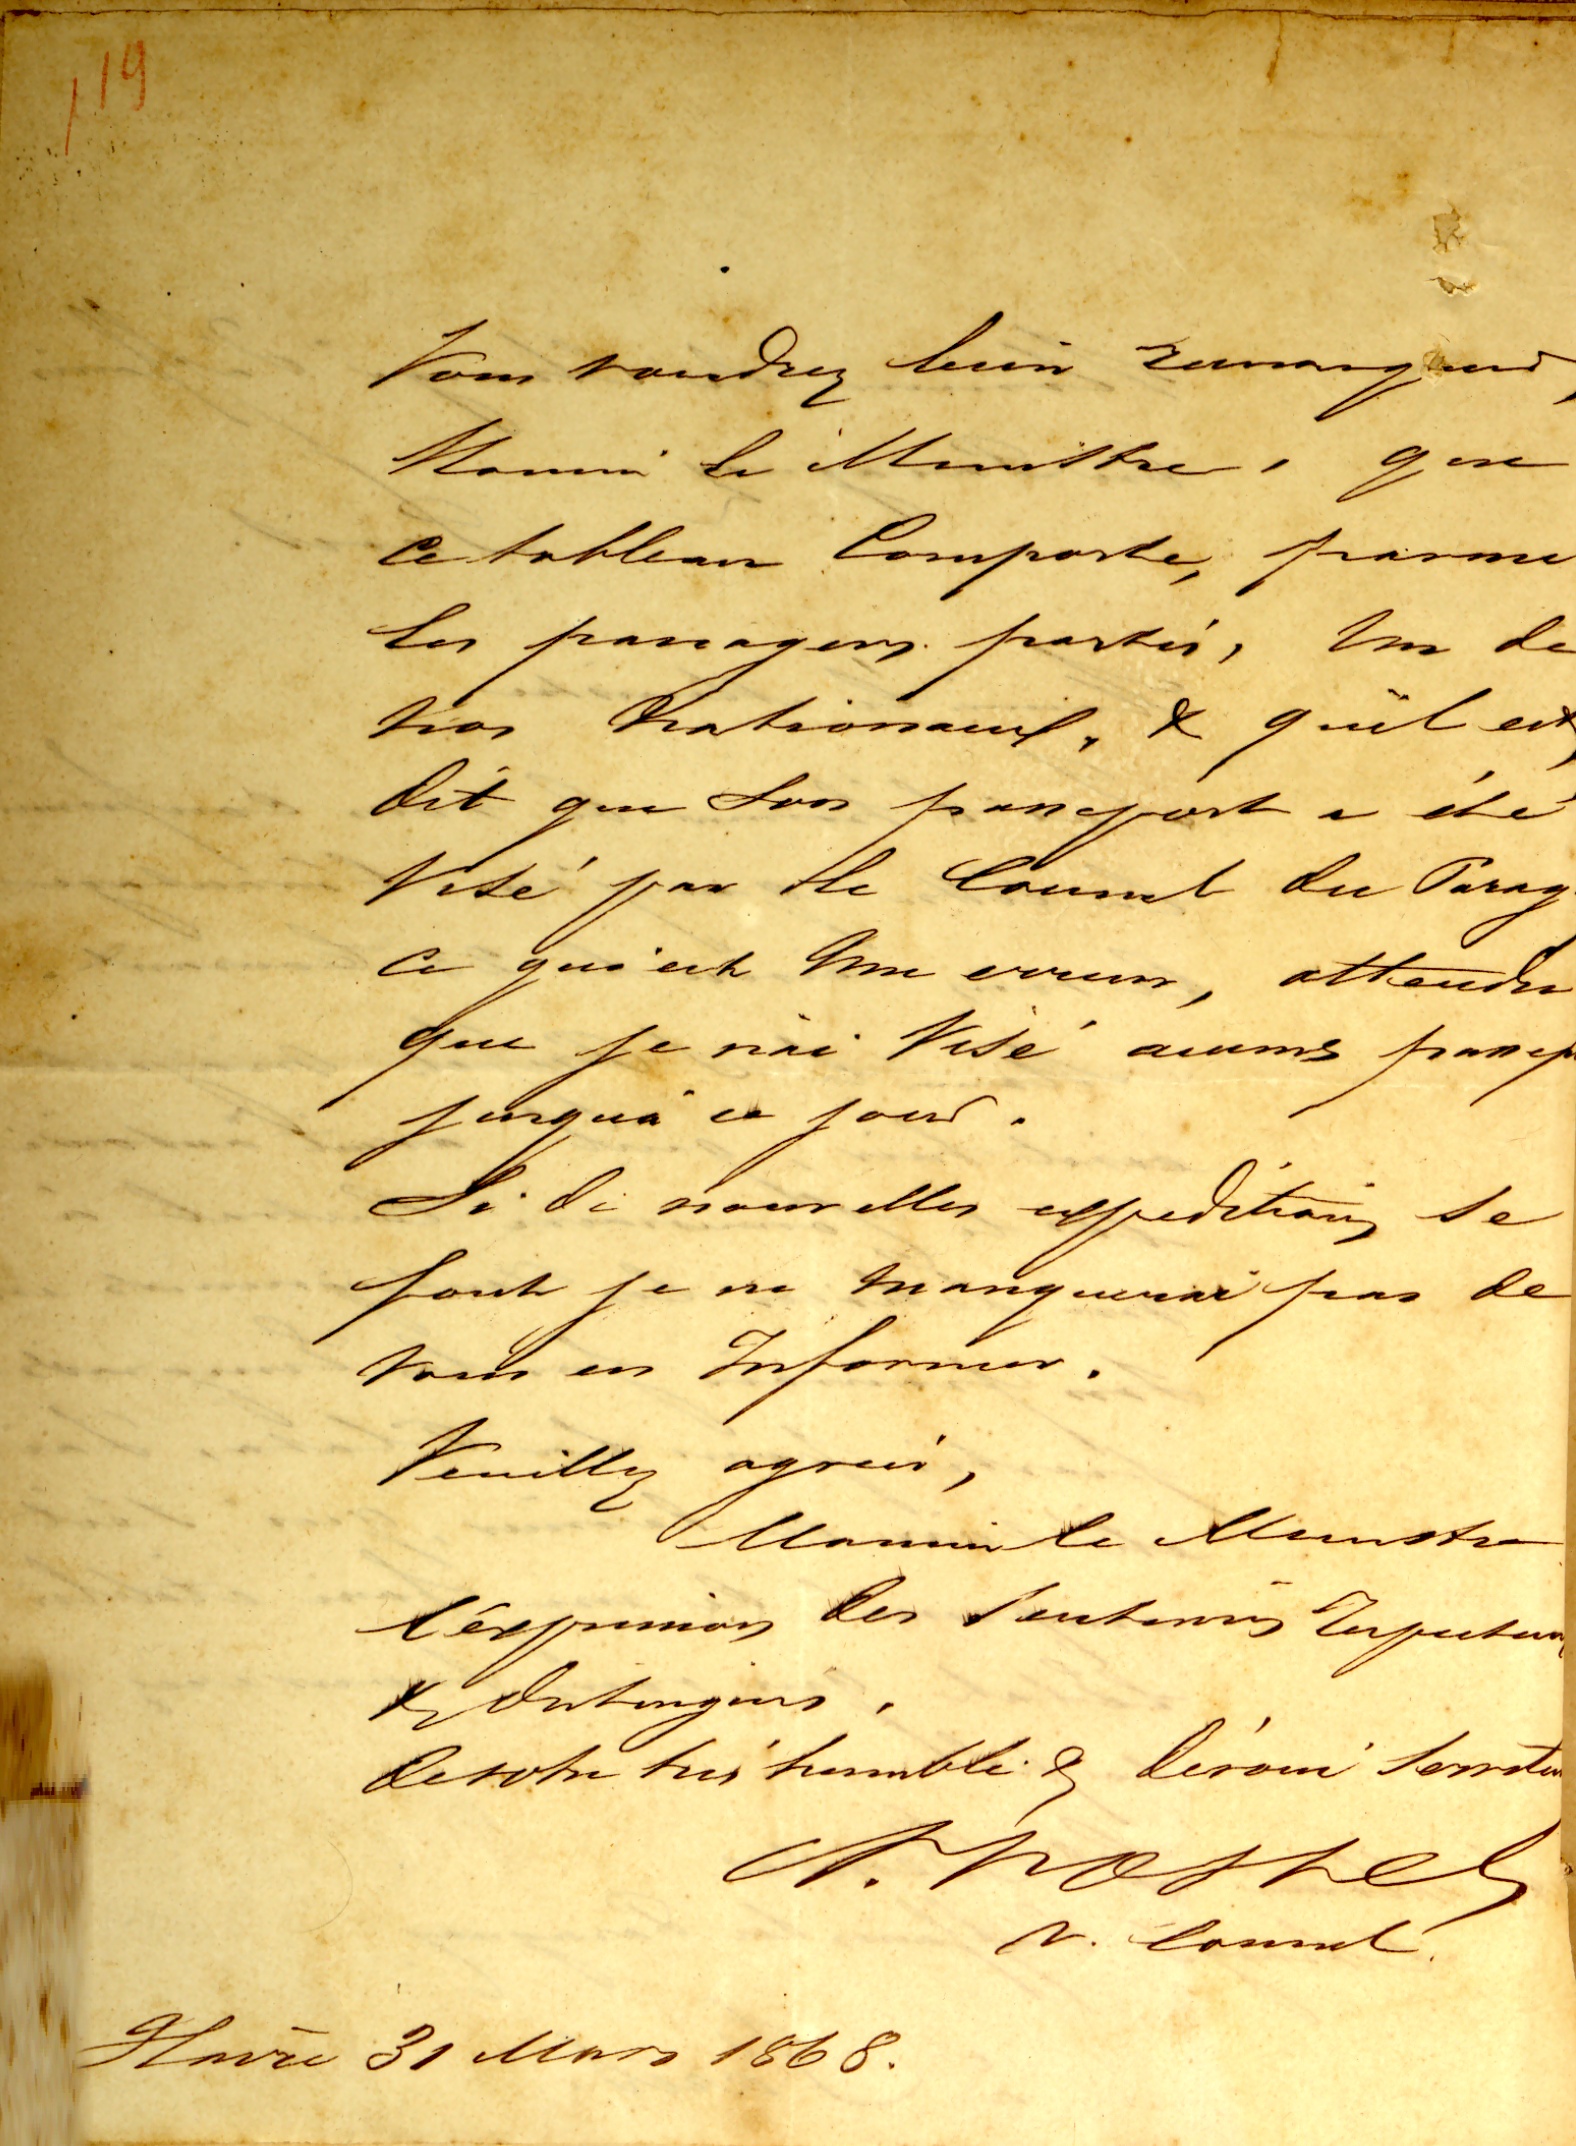 119
Vous voudrez bien remarquer,
Monsieur le Ministre, que
ce tableau comporte, parmi
les passagers partis, un de
nos nationaux, & qu'il est
dit que son passeport a été
visé par le Consul du Parag.
ce qui est une erreur, attendu
que je n'ai visé aucuns passep
jusqu'à ce jour.
Si de nouvelles expeditions se
font je ne manquerai pas de
vous en Informer.
Veuillez agréer,
Monsieur le Ministre
l'éxpression des sentiments respectueux
& distingués.
de votre très humble & dévoué serviteur
V. Consul.
Havre 31 Mars 1868.